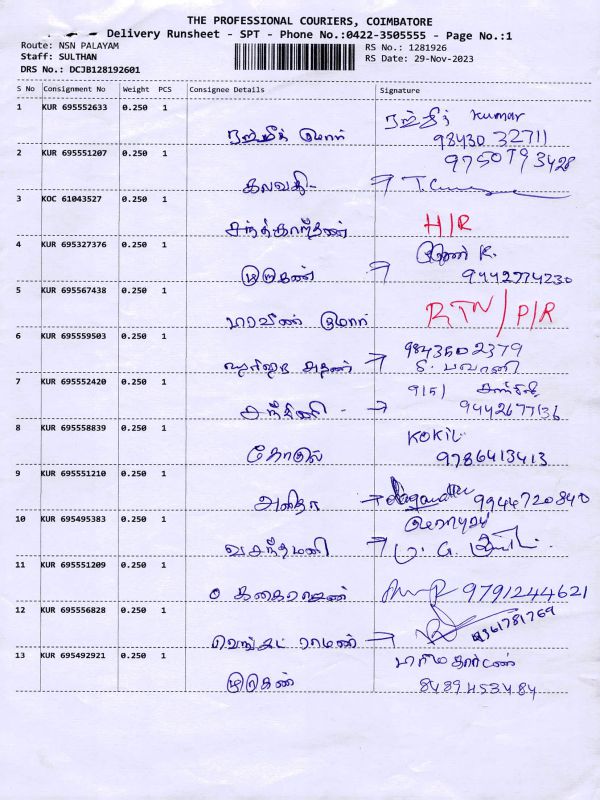 THE PROFESSIONAL COURIERS, COIMBATORE
Delivery Runsheet - SPT - Phone No.:0422-3505555 - Page No.:1
Route: NSN PALAYAM
RS No.: 1281926
Staff: SULTHAN
RS Date: 29-Nov-2023
DRS No.: DCJB128192601
S No Consignment No Weight PCS Consignee Details Signature
1 KUR 695552633 0.250 1
ரஞ்சித் குமார்
kumar
98430 32711
2 KUR 695551207 0.250 1
9750793428
கலாவதி -
3 KOC 61043527 0.250 1
H/R
4 KUR 695327376 0.250 1
முருகன்
K.
9442774230
5 KUR 695567438 0.250 1
பிரவீண் குமார்
RTN/P/R
6 KUR 695559503 0.250 1
9843502379
S. பவானி
7 KUR 695552420 0.250 1
9442677136
8 KUR 695558839 0.250 1
கோகில்
KOKIL
9786413413
9 KUR 695551210 0.250 1
அனிதா
9944720840
10 KUR 695495383 0.250 1
வசந்தமணி
11 KUR 695551209 0.250 1
9791244621
12 KUR 695556828 0.250 1
வெங்கட் ராமன்
9361781769
13 KUR 695492921 0.250 1
முருகன்
8489453484